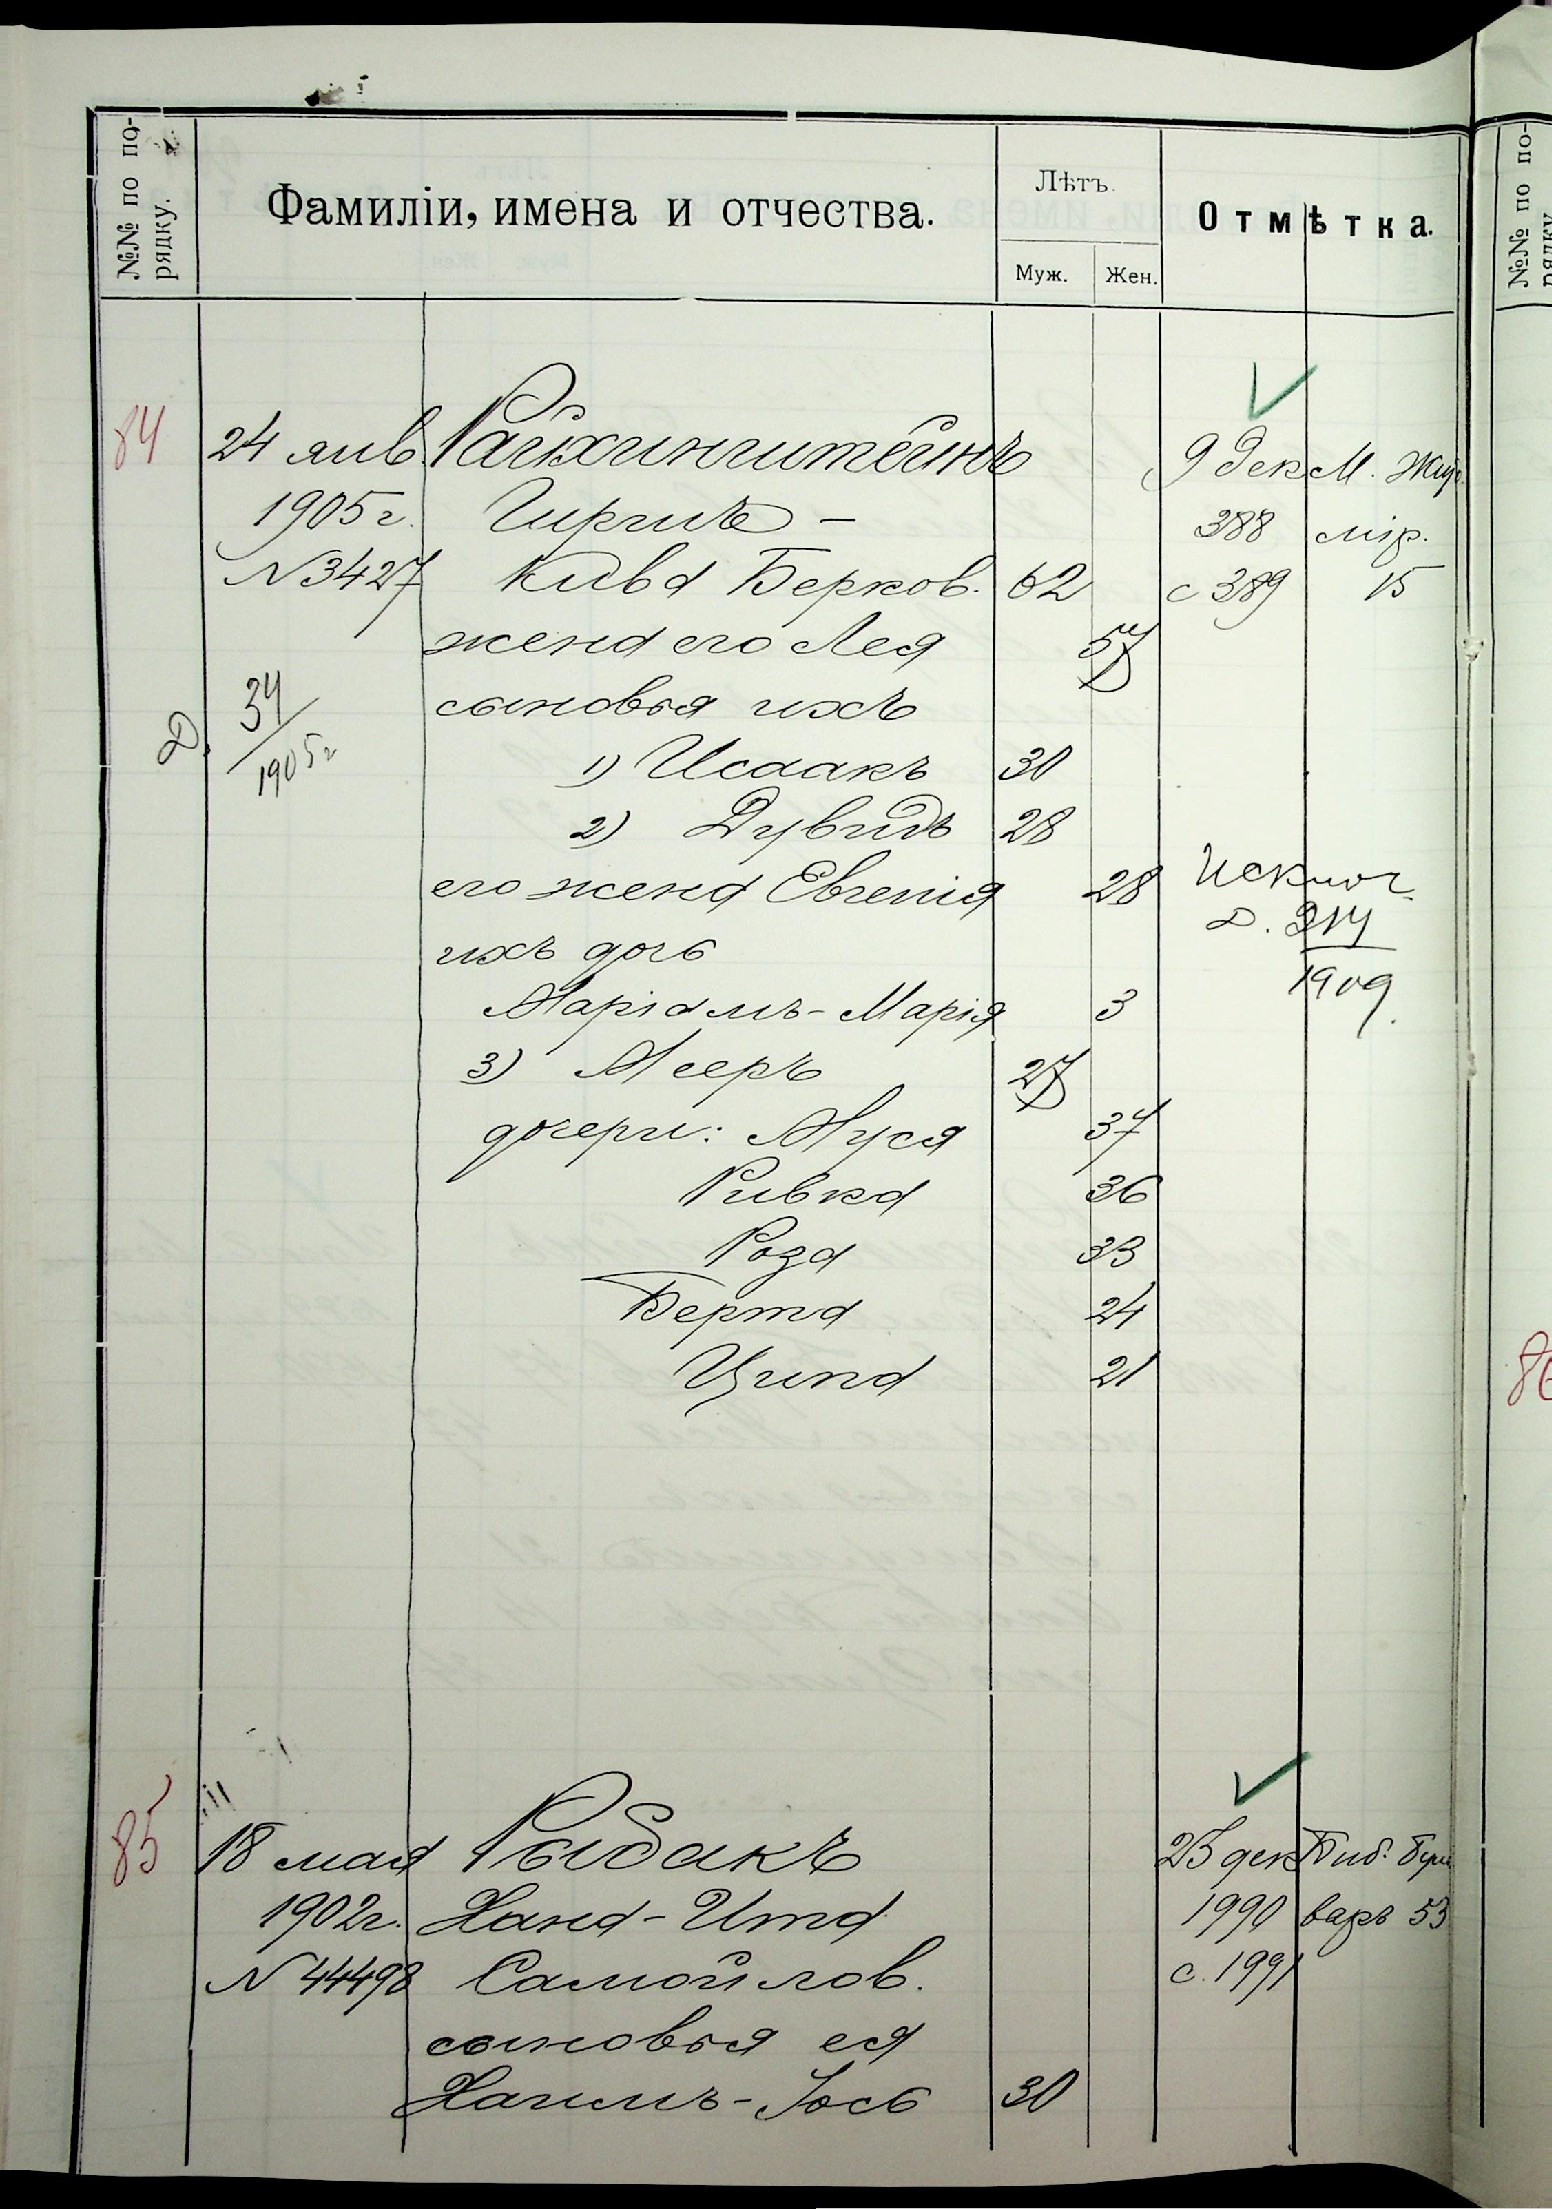 №№ по по-
рядку.
Фамиліи, имена и отчества.
Лѣтъ.
Муж.
Жен.
Отмѣтка.
№№ по по-
рядку
84 24 янв. Райхинштейнъ 9 Дек М. Жит
1905 г. Гиршъ - 388 мір.
N 3427 Кива Берков. 62 с 389 15
жена его Лея 57
Д. 34 сыновья ихъ
1905 г
1) Исаакъ 30
2) Дувидъ 28
его жена Евгенія 28 Исключ.
ихъ дочь Д. 214
1909.
Маріамъ-Марія 3
3) Мееръ 27
дочери: Муся 37
Ривка 36
Роза 33
Берта 24
Ципа 21
86
85 18 мая Рыбакъ 23 дек Биб. Буль
1902 г. Хана-Ита 1990 варъ 53
N 44498 Самойлов. с. 1991
сыновья ея
Хаимъ-Іось 30